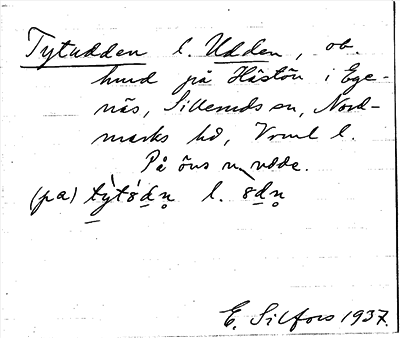 Tytudden l. Udden, ob.
hmd på Höstön i Ege-
näs, Silleruds sn, Nord-
marks hd, Vrml l.
På öns n, udde.
(pa) tỳtód̲n̥ l. 8d̲n̥
E. Silfors 1937.